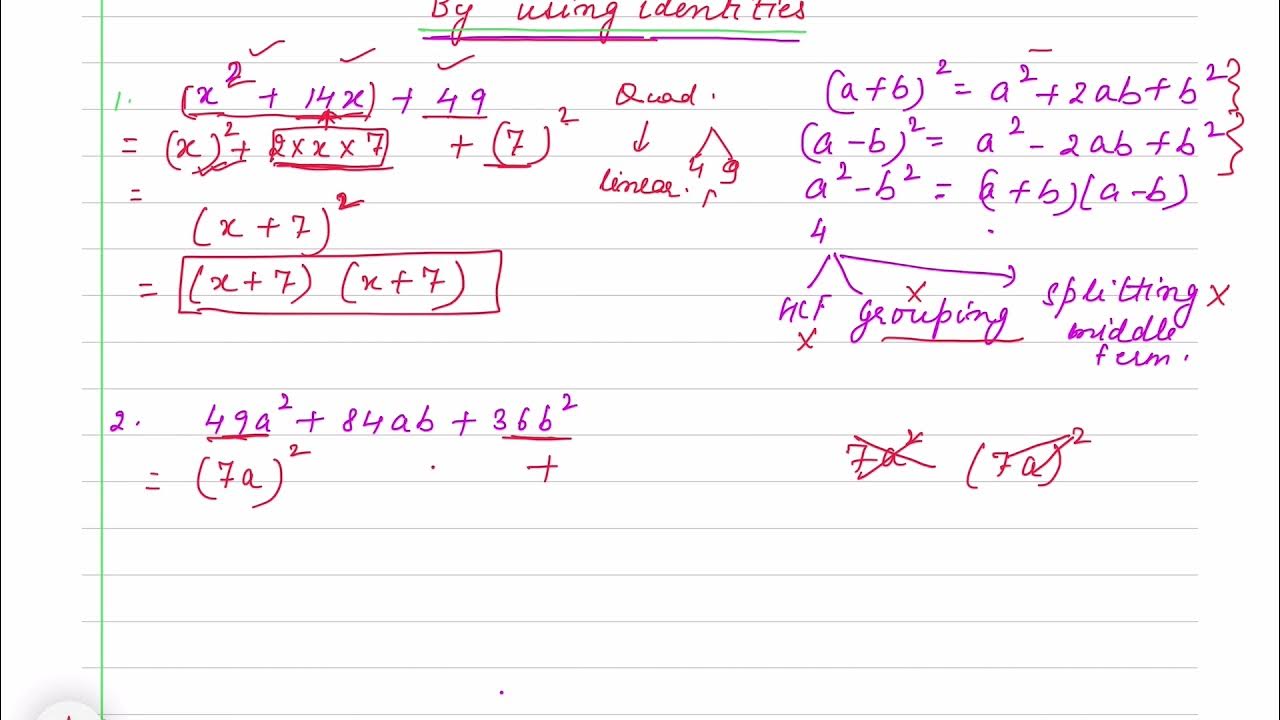 By using identities
1. (x² + 14x) + 49
= (x)² + 2×x×7 + (7)²
=
(x + 7)²
= (x+7) (x+7)
Quad.
↓
linear.
49
(a+b)² = a² + 2ab + b² }
(a-b)² = a² - 2ab + b² }
a² - b² = (a+b)(a-b)
4
HCF grouping splitting x
x x middle
term.
2. 49a² + 84ab + 36b²
= (7a)² . +
7a² (7a)²